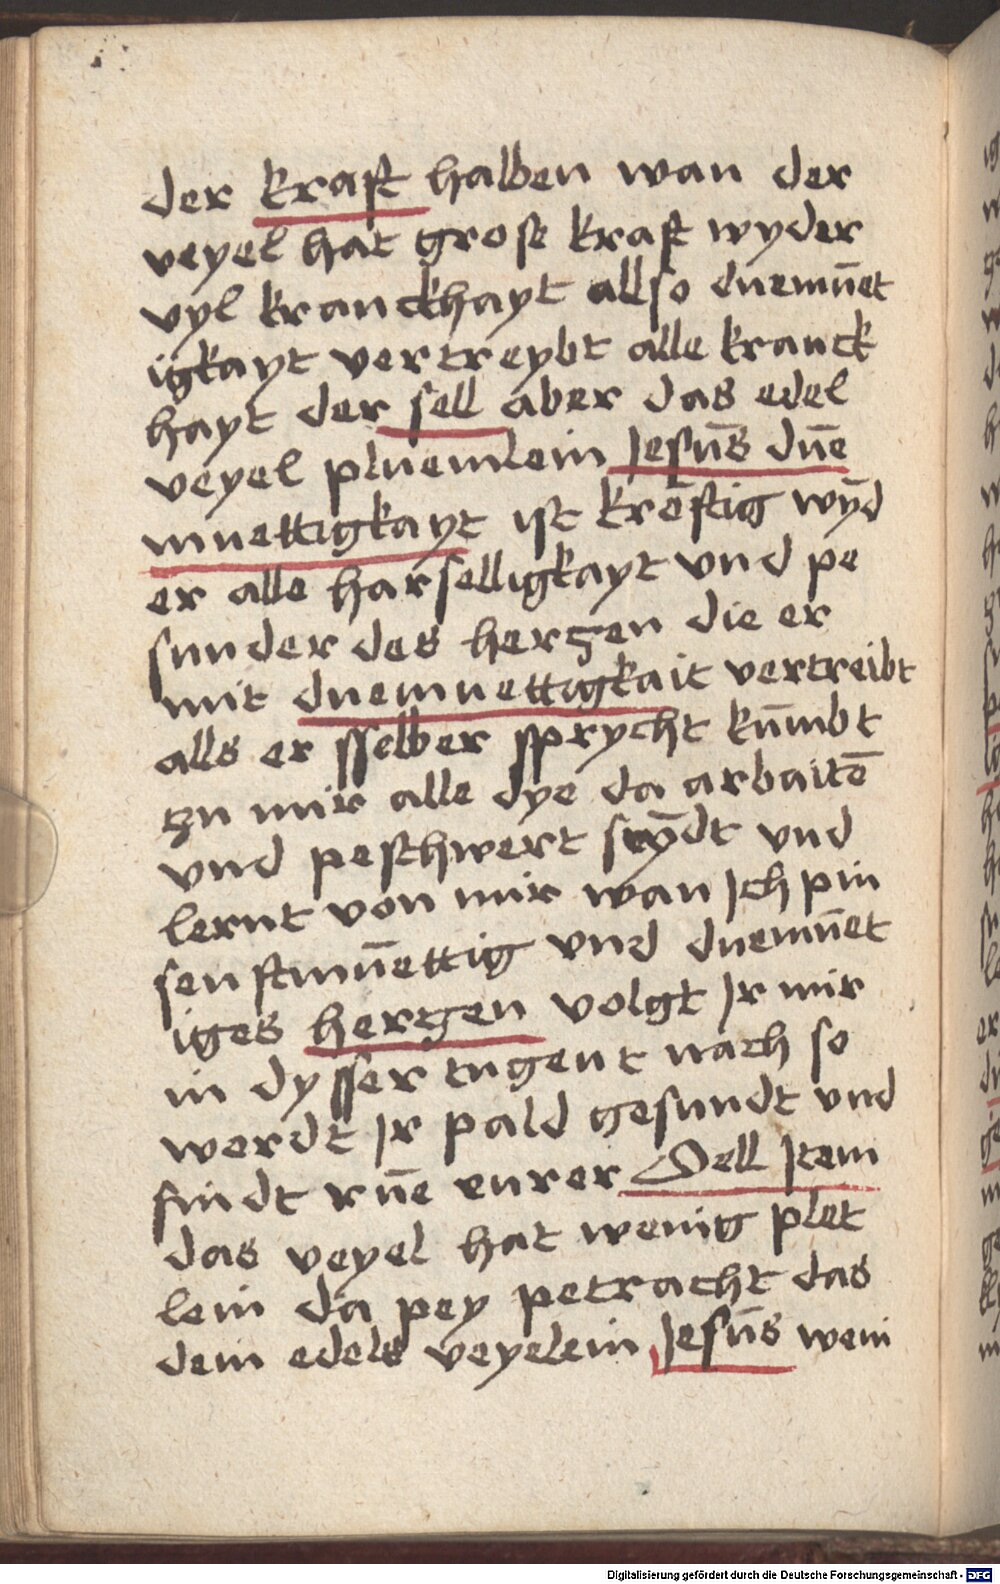 der kraft halben wan der
veyel hat grose kraft wyder
vyl kranckhayt allso duemūet
igkayt vertreybt alle kranck
hayt der sell aber das edel
veyel pluemlein Jesūs dūe
muettigkayt ist kreftig wyd
er alle harselligkayt vnd pe
sunder des herczen die er
mit duemuettigkait vertreibt
alls er sselber sprycht kūmbt
zu mir alle dye da arbaitē
vnd pesthwert seydt vnd
lernt von mir wan Jch pin
senftmūettig vnd duemūet
iges herczen volgt Jr mir
in dysser tugent nach so
werdt Jr pald gesundt vnd
findt rūe eurer Sell Jtem
das veyel hat wenig plet
lein da pey petracht das
dein edels veyelein Jesūs wein
Digitalisierung gefördert durch die Deutsche Forschungsgemeinschaft - DFG